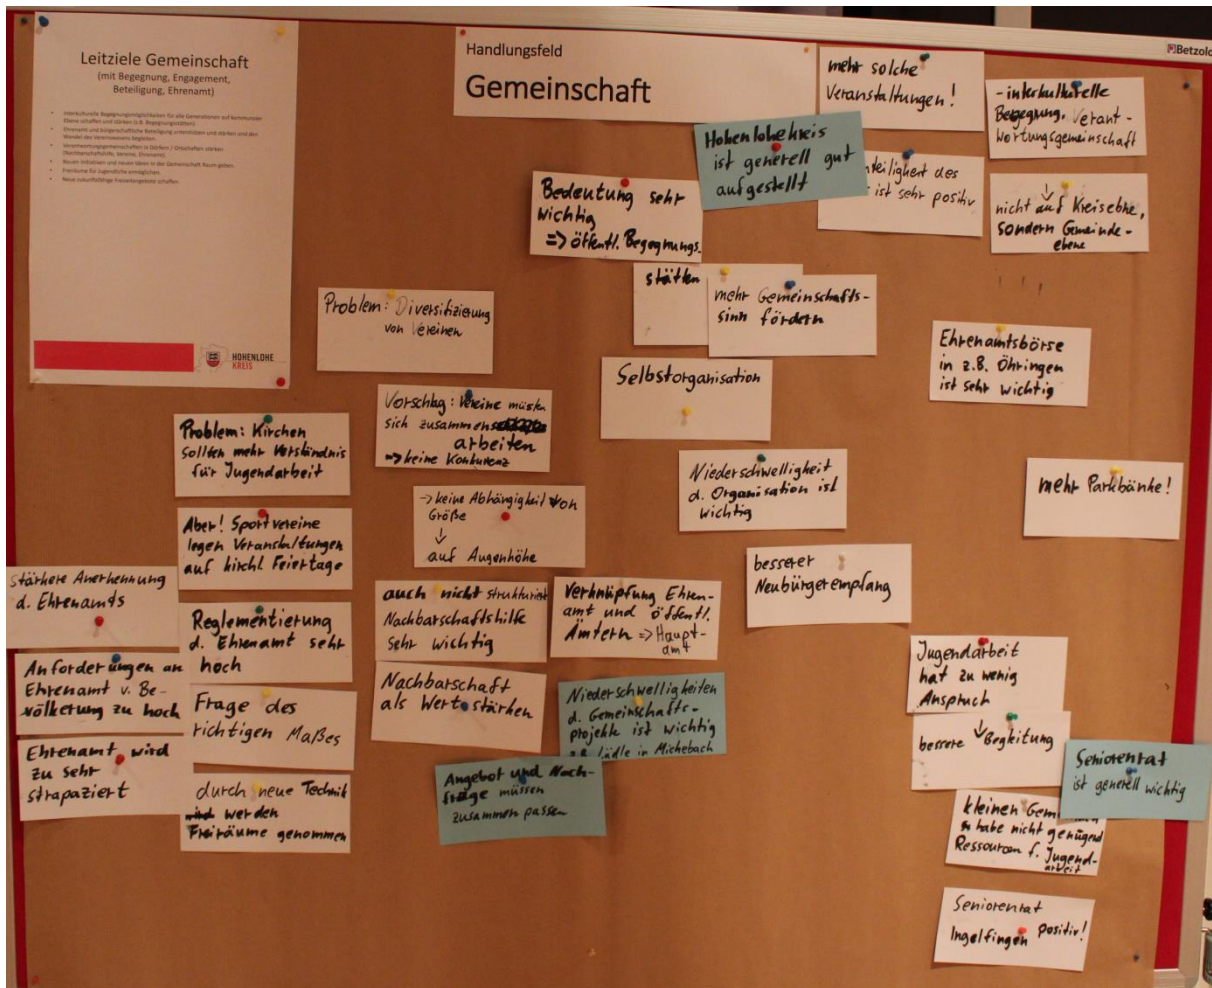 Betzold
Leitziele Gemeinschaft
(mit Begegnung, Engagement,
Beteiligung, Ehrenamt)
Interkulturelle Begegnungsmöglichkeiten für alle Generationen auf kommunaler
Ebene schaffen und stärken (z.B. Begegnungsstätten).
Ehrenamt und bürgerschaftliche Beteiligung unterstützen und stärken und den
Wandel des Vereinswesens begleiten.
Verantwortungsgemeinschaften in Dörfern / Ortschaften stärken
(Nachbarschaftshilfe, Vereine, Ehrenamt).
Neuen Initiativen und neuen Ideen in der Gemeinschaft Raum geben.
Freiräume für Jugendliche ermöglichen.
Neue zukunftsfähige Freizeitangebote schaffen.
HOHENLOHE
KREIS
Handlungsfeld
Gemeinschaft
mehr solche
Veranstaltungen!
- interkulturelle
Begegnung, Verant-
wortungsgemeinschaft
Hohenlohekreis
ist generell gut
aufgestellt
des
ist sehr positiv
nicht auf Kreisebne,
sondern Gemeinde-
ebene
Bedeutung sehr
wichtig
=> öffentl. Begegnungs-
stätten
mehr Gemeinschafts-
sinn fördern
Problem: Diversifizierung
von Vereinen
Ehrenamtsbörse
in z.B. Öhringen
ist sehr wichtig
Selbstorganisation
Vorschlag: Vereine müssen
sich zusammen
arbeiten
=> keine Konkurenz
Problem: Kirchen
sollten mehr Verständnis
für Jugendarbeit
Niederschwelligkeit
d. Organisation ist
wichtig
mehr Parkbänke!
-> keine Abhängigkeit von
Größe
↓
auf Augenhöhe
Aber! Sportvereine
legen Veranstaltungen
auf kirchl. Feiertage
besserer
Neubürgerempfang
stärkere Anerkennung
d. Ehrenamts
auch nicht strukturierte
Nachbarschaftshilfe
sehr wichtig
Verknüpfung Ehren-
amt und öffentl.
Ämtern => Haupt-
amt
Reglementierung
d. Ehrenamt sehr
hoch
Jugendarbeit
hat zu wenig
Anspruch
Anforderungen an
Ehrenamt v. Be-
völkerung zu hoch
Nachbarschaft
als Wert stärken
Niederschwelligkeiten
d. Gemeinschafts-
projekte ist wichtig
z.B. Lädle in Michebach
Frage des
richtigen Maßes
bessere Begleitung
Ehrenamt wird
zu sehr
strapaziert
Seniorenrat
ist generell wichtig
Angebot und Nach-
frage müssen
zusammen passen
durch neue Technik
werden
Freiräume genommen
kleinen
habe nicht genügend
Ressourcen f. Jugend-
arbeit
Seniorenrat
Ingelfingen positiv!